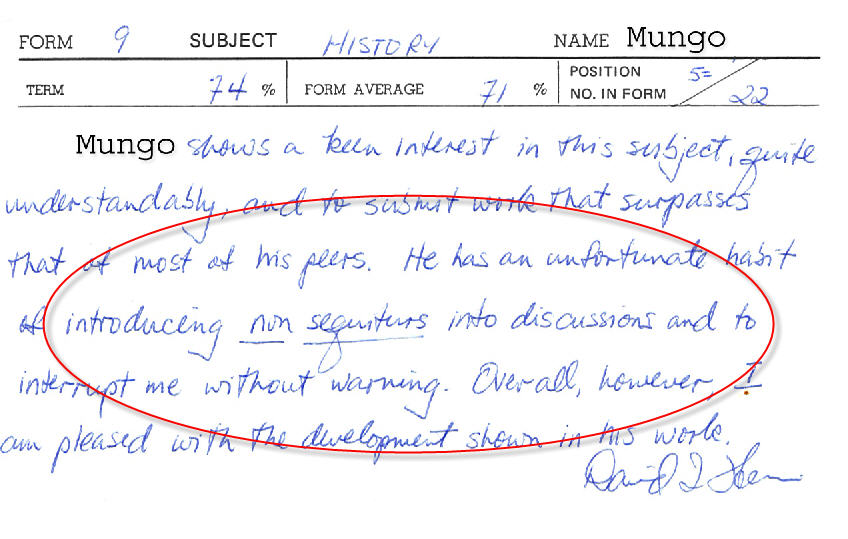 FORM 9 SUBJECT HISTORY NAME Mungo
TERM 74 % FORM AVERAGE 71 % POSITION 5=
NO. IN FORM 22
Mungo shows a keen interest in this subject, quite
understandably, and to submit work that surpasses
that of most of his peers. He has an unfortunate habit
of introducing non sequiturs into discussions and to
interrupt me without warning. Overall, however, I
am pleased with the development shown in his work.
David